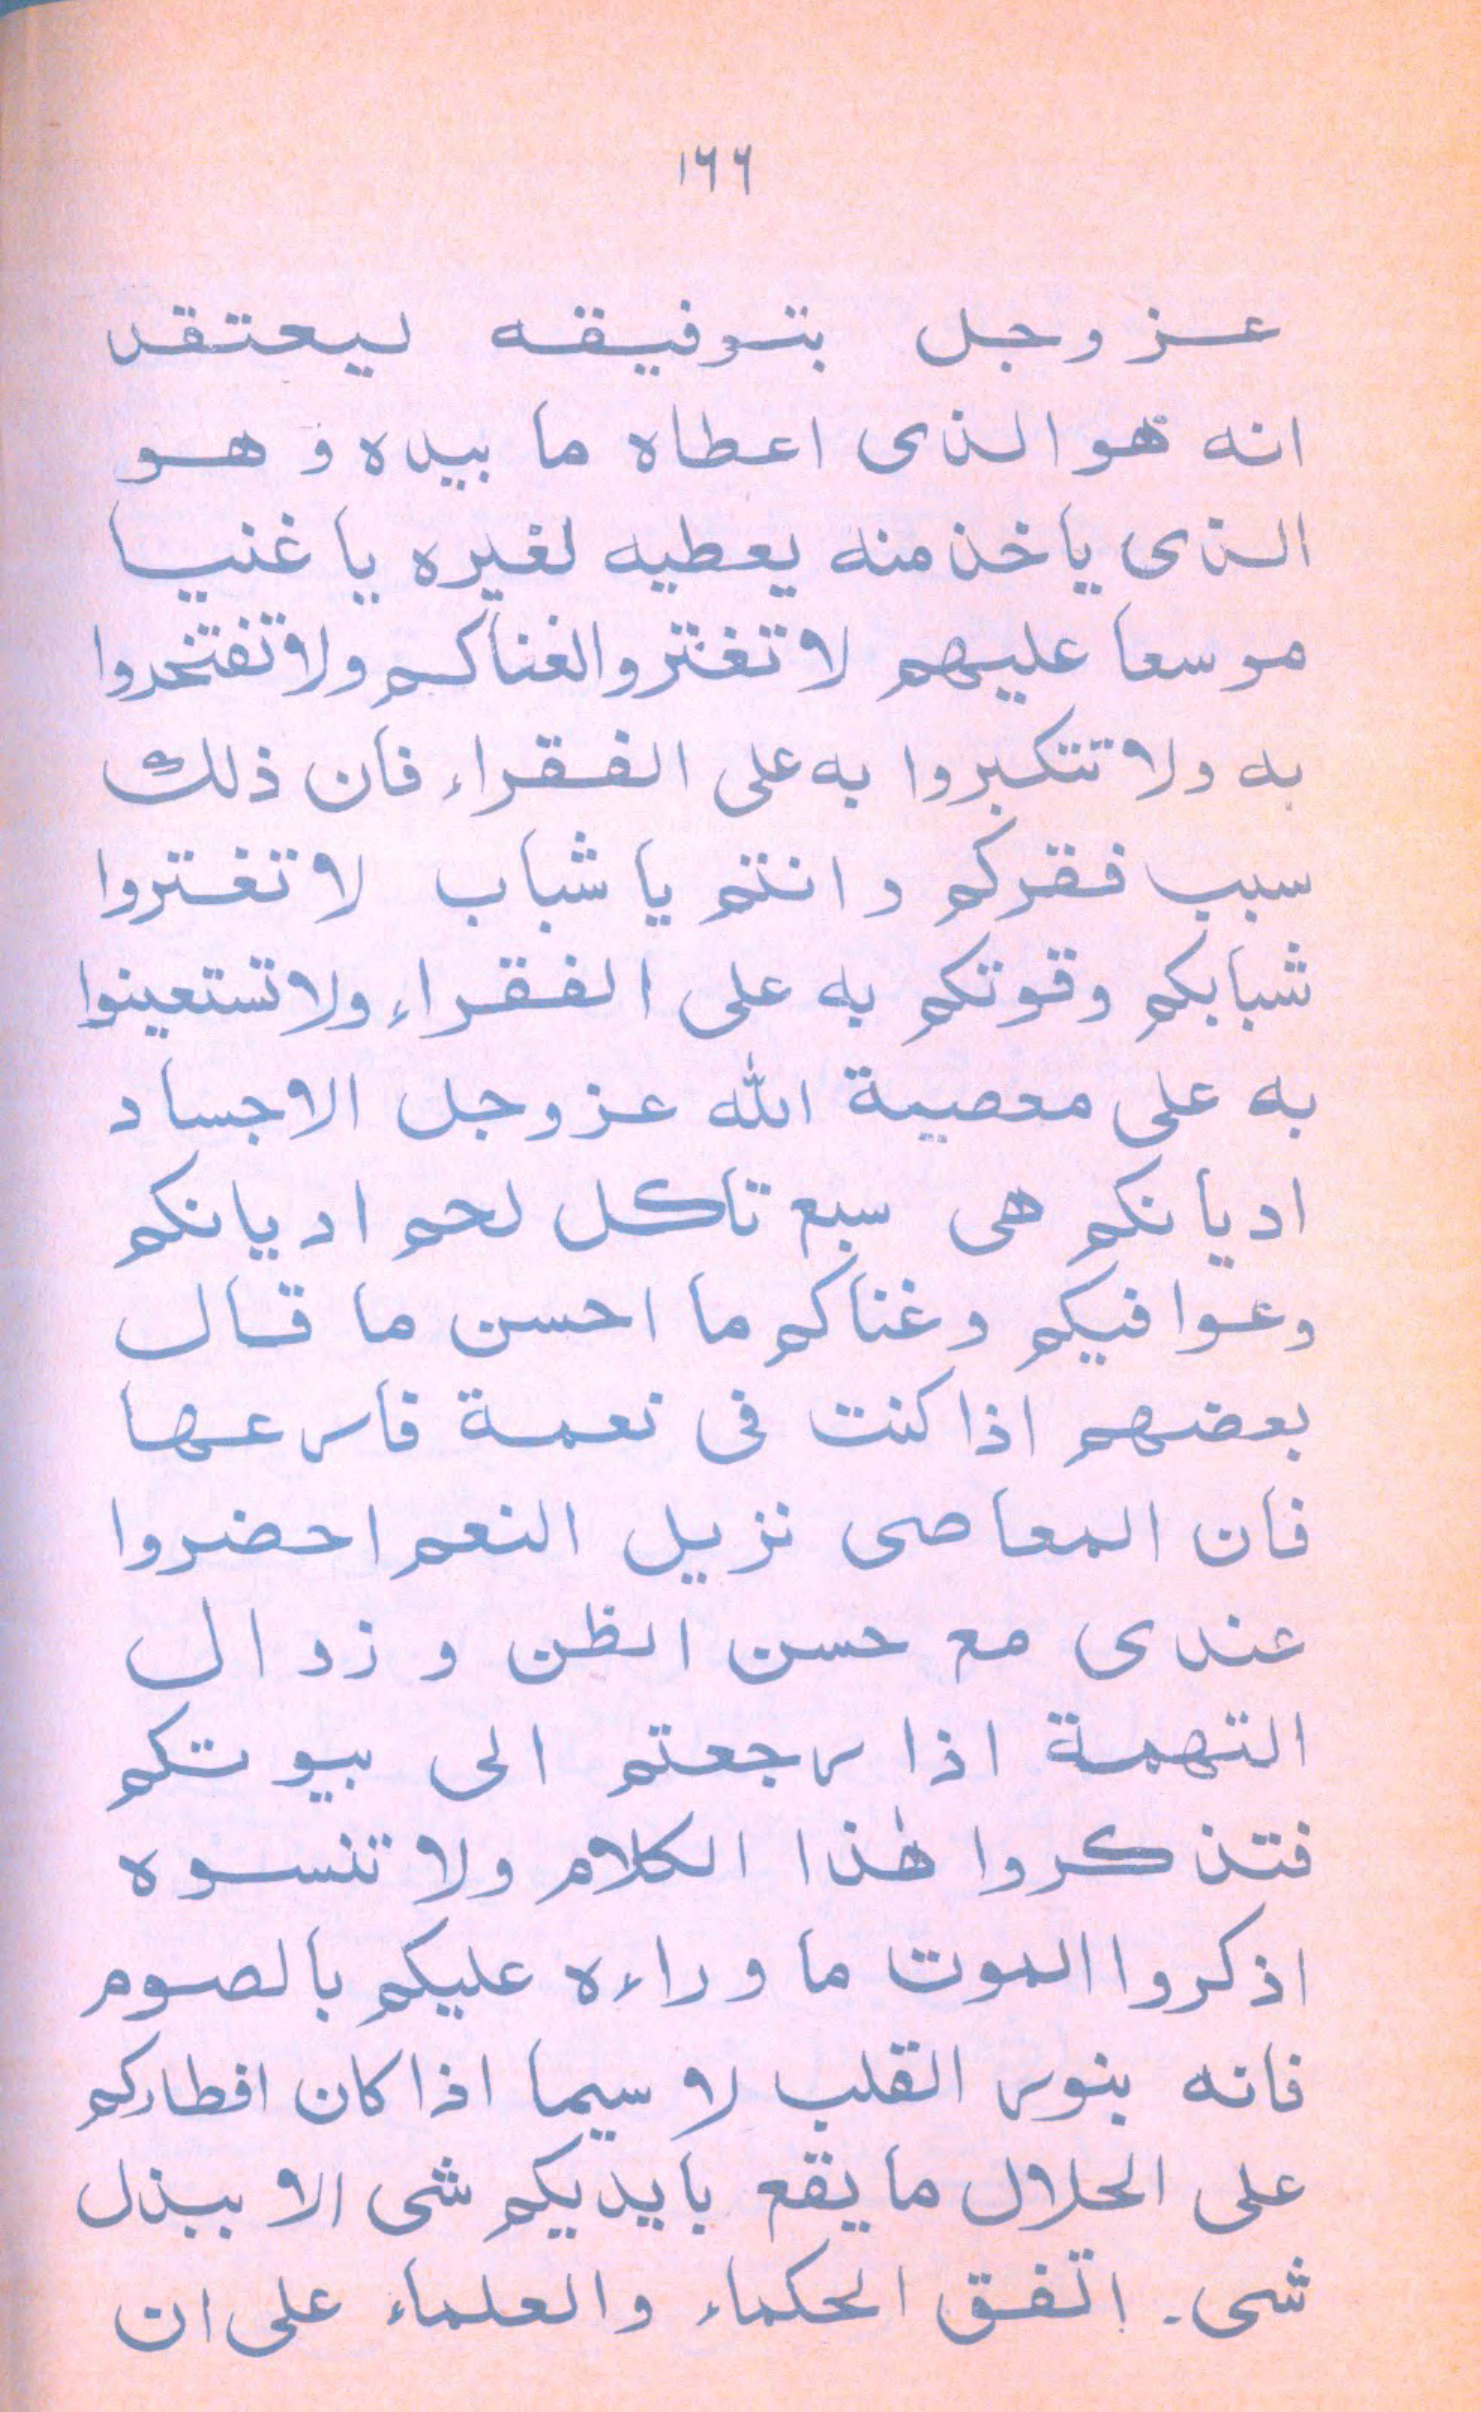 ١٦٦
عزوجل بتوفيقه ليعتقد
انه هو الذى اعطاه ما بيده و هو
الذى ياخذ منه يعطيه لغيره يا غنيا
موسعا عليهم لا تغتروا لغناكم ولا تفتخدوا
به ولا تتكبروا به على الفقراء فان ذلك
سبب فقركم و انتم يا شباب لا تغتروا
شبابكم وقوتكم به على الفقراء ولا تستعينوا
به على معصية الله عزوجل الاجساد
اديانكم هى سبع تاكل لحم اديانكم
وعوافيكم وغناكم ما احسن ما قال
بعضهم اذا كنت فى نعمة فارعها
فان المعاصى نزيل النعم احضروا
عندى مع حسن الظن و زوال
التهمة اذا رجعتم الى بيوتكم
فتذكروا هٰذا الكلام ولا تنسوه
اذكروا الموت ما وراءه عليكم بالصوم
فانه بنور القلب لا سيما اذا كان افطاركم
على الحلال ما يقع بايديكم شى الا ببذل
شى ـ اتفق الحكماء والعلماء على ان